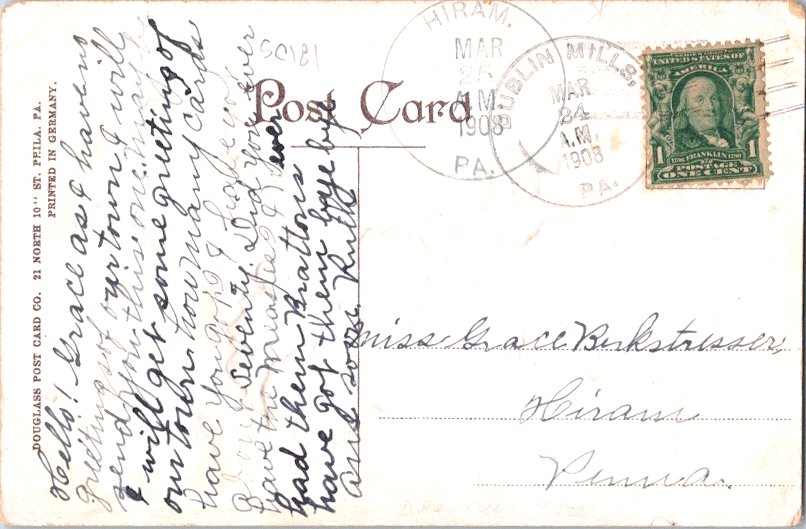 Post Card
HIRAM.
MAR
25
A.M.
1908
PA.
DUBLIN MILLS,
MAR
24
A.M.
1908
PA.
UNITED STATES OF
AMERICA
1
1706 FRANKLIN 1790
POSTAGE
ONE CENT
DOUGLASS POST CARD CO. 21 NORTH 10" ST. PHILA. PA.
PRINTED IN GERMANY.
SC181
Hello! Grace as I have no
greetings of our town I will
send you this one maybe
I will get some greeting of
our town. how many cards
have you got? I have got
about seventy. Did you ever
have the measles? I never
had them Brattons
have got them bye bye
ans soon. Ruth
Miss Grace Berkstresser,
Hiram
Penna.